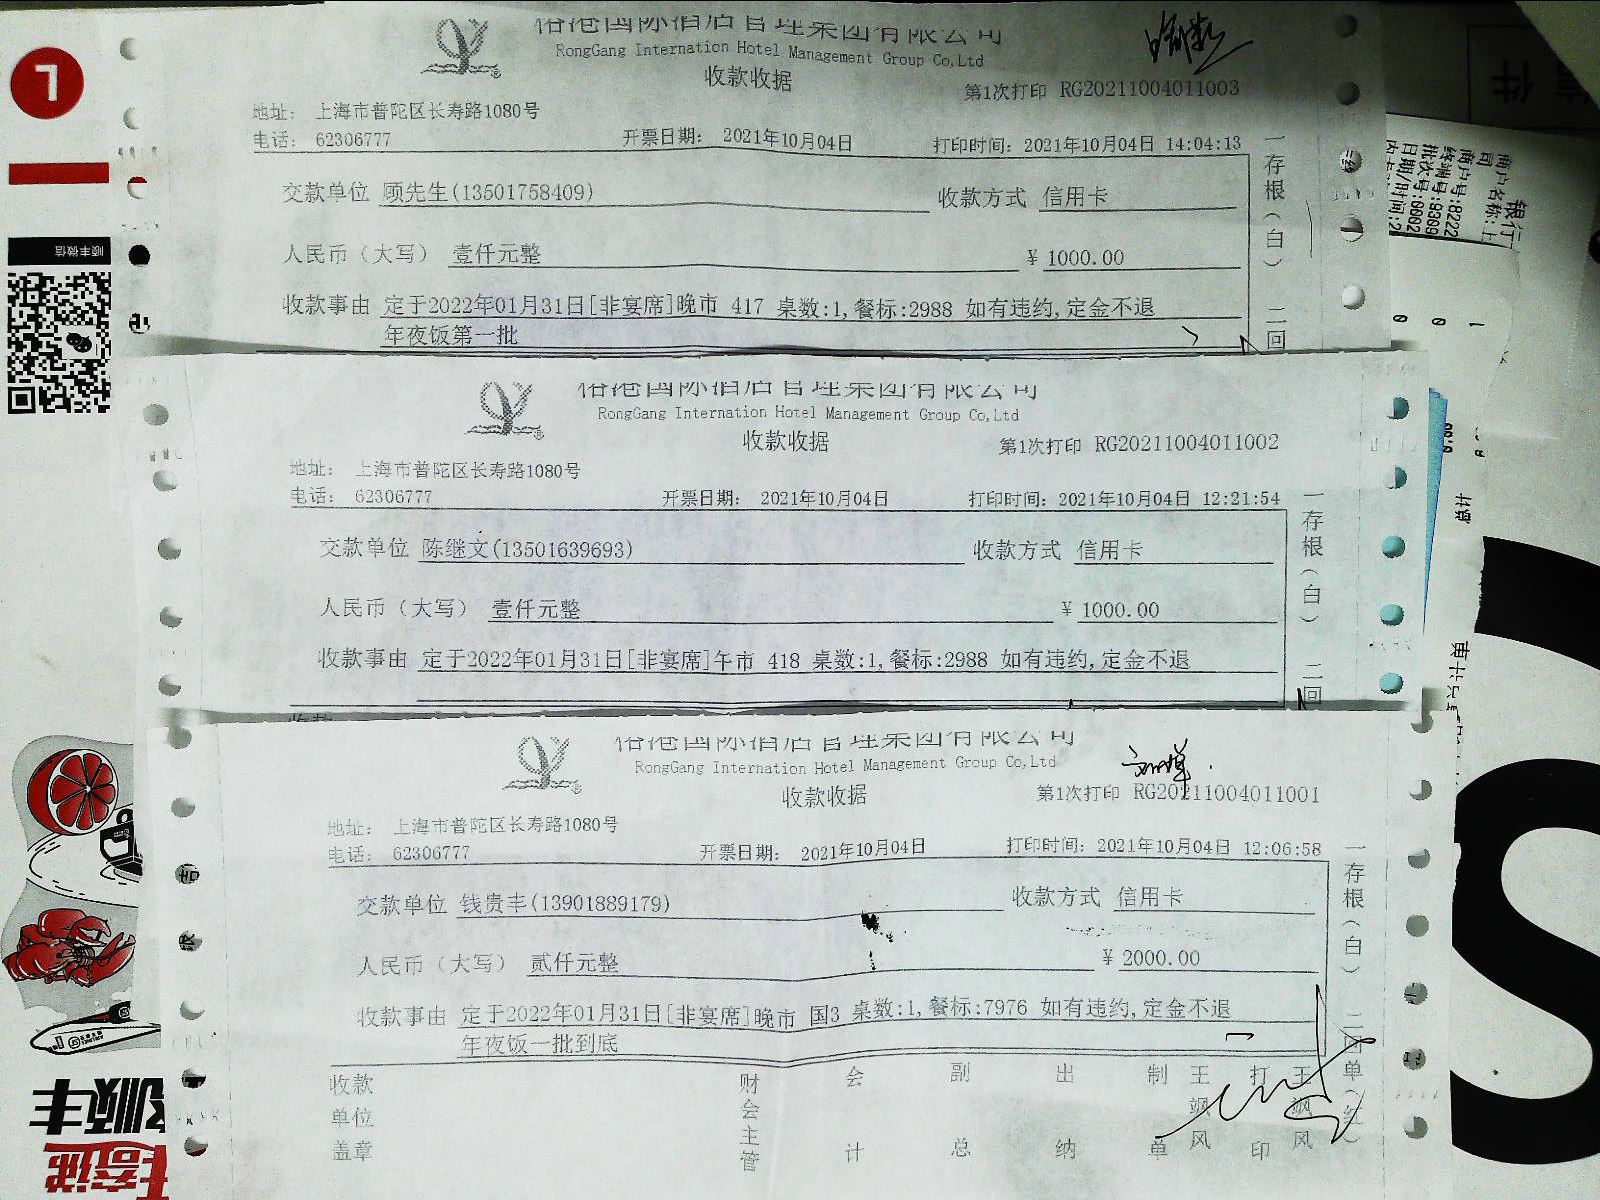 裕港国际酒店管理集团有限公司
RongGang Internation Hotel Management Group Co,Ltd
收款收据
第1次打印 RG20211004011003
地址： 上海市普陀区长寿路1080号
电话： 62306777 开票日期： 2021年10月04日 打印时间：2021年10月04日 14:04:13
交款单位 顾先生(13501758409) 收款方式 信用卡
人民币（大写） 壹仟元整 ¥ 1000.00
收款事由 定于2022年01月31日[非宴席]晚市 417 桌数:1,餐标:2988 如有违约,定金不退
年夜饭第一批
一存根（白） 二回
裕港国际酒店管理集团有限公司
RongGang Internation Hotel Management Group Co,Ltd
收款收据
第1次打印 RG20211004011002
地址： 上海市普陀区长寿路1080号
电话： 62306777 开票日期： 2021年10月04日 打印时间：2021年10月04日 12:21:54
交款单位 陈继文(13501639693) 收款方式 信用卡
人民币（大写） 壹仟元整 ¥ 1000.00
收款事由 定于2022年01月31日[非宴席]午市 418 桌数:1,餐标:2988 如有违约,定金不退
一存根（白） 二回
收款
裕港国际酒店管理集团有限公司
RongGang Internation Hotel Management Group Co,Ltd
收款收据
第1次打印 RG20211004011001
地址： 上海市普陀区长寿路1080号
电话： 62306777 开票日期： 2021年10月04日 打印时间：2021年10月04日 12:06:58
交款单位 钱贵丰(13901889179) 收款方式 信用卡
人民币（大写） 贰仟元整 ¥ 2000.00
收款事由 定于2022年01月31日[非宴席]晚市 国3 桌数:1,餐标:7976 如有违约,定金不退
年夜饭一批到底
一存根（白） 二回单（红）
收款单位盖章 财会主管 会计 副总 出纳 制单 王飒风 打印 王飒风
顺丰微信
顺丰
银行
商户名称:上
商户号:8222
终端号:9309
批次号:0002
日期/时间:2
S